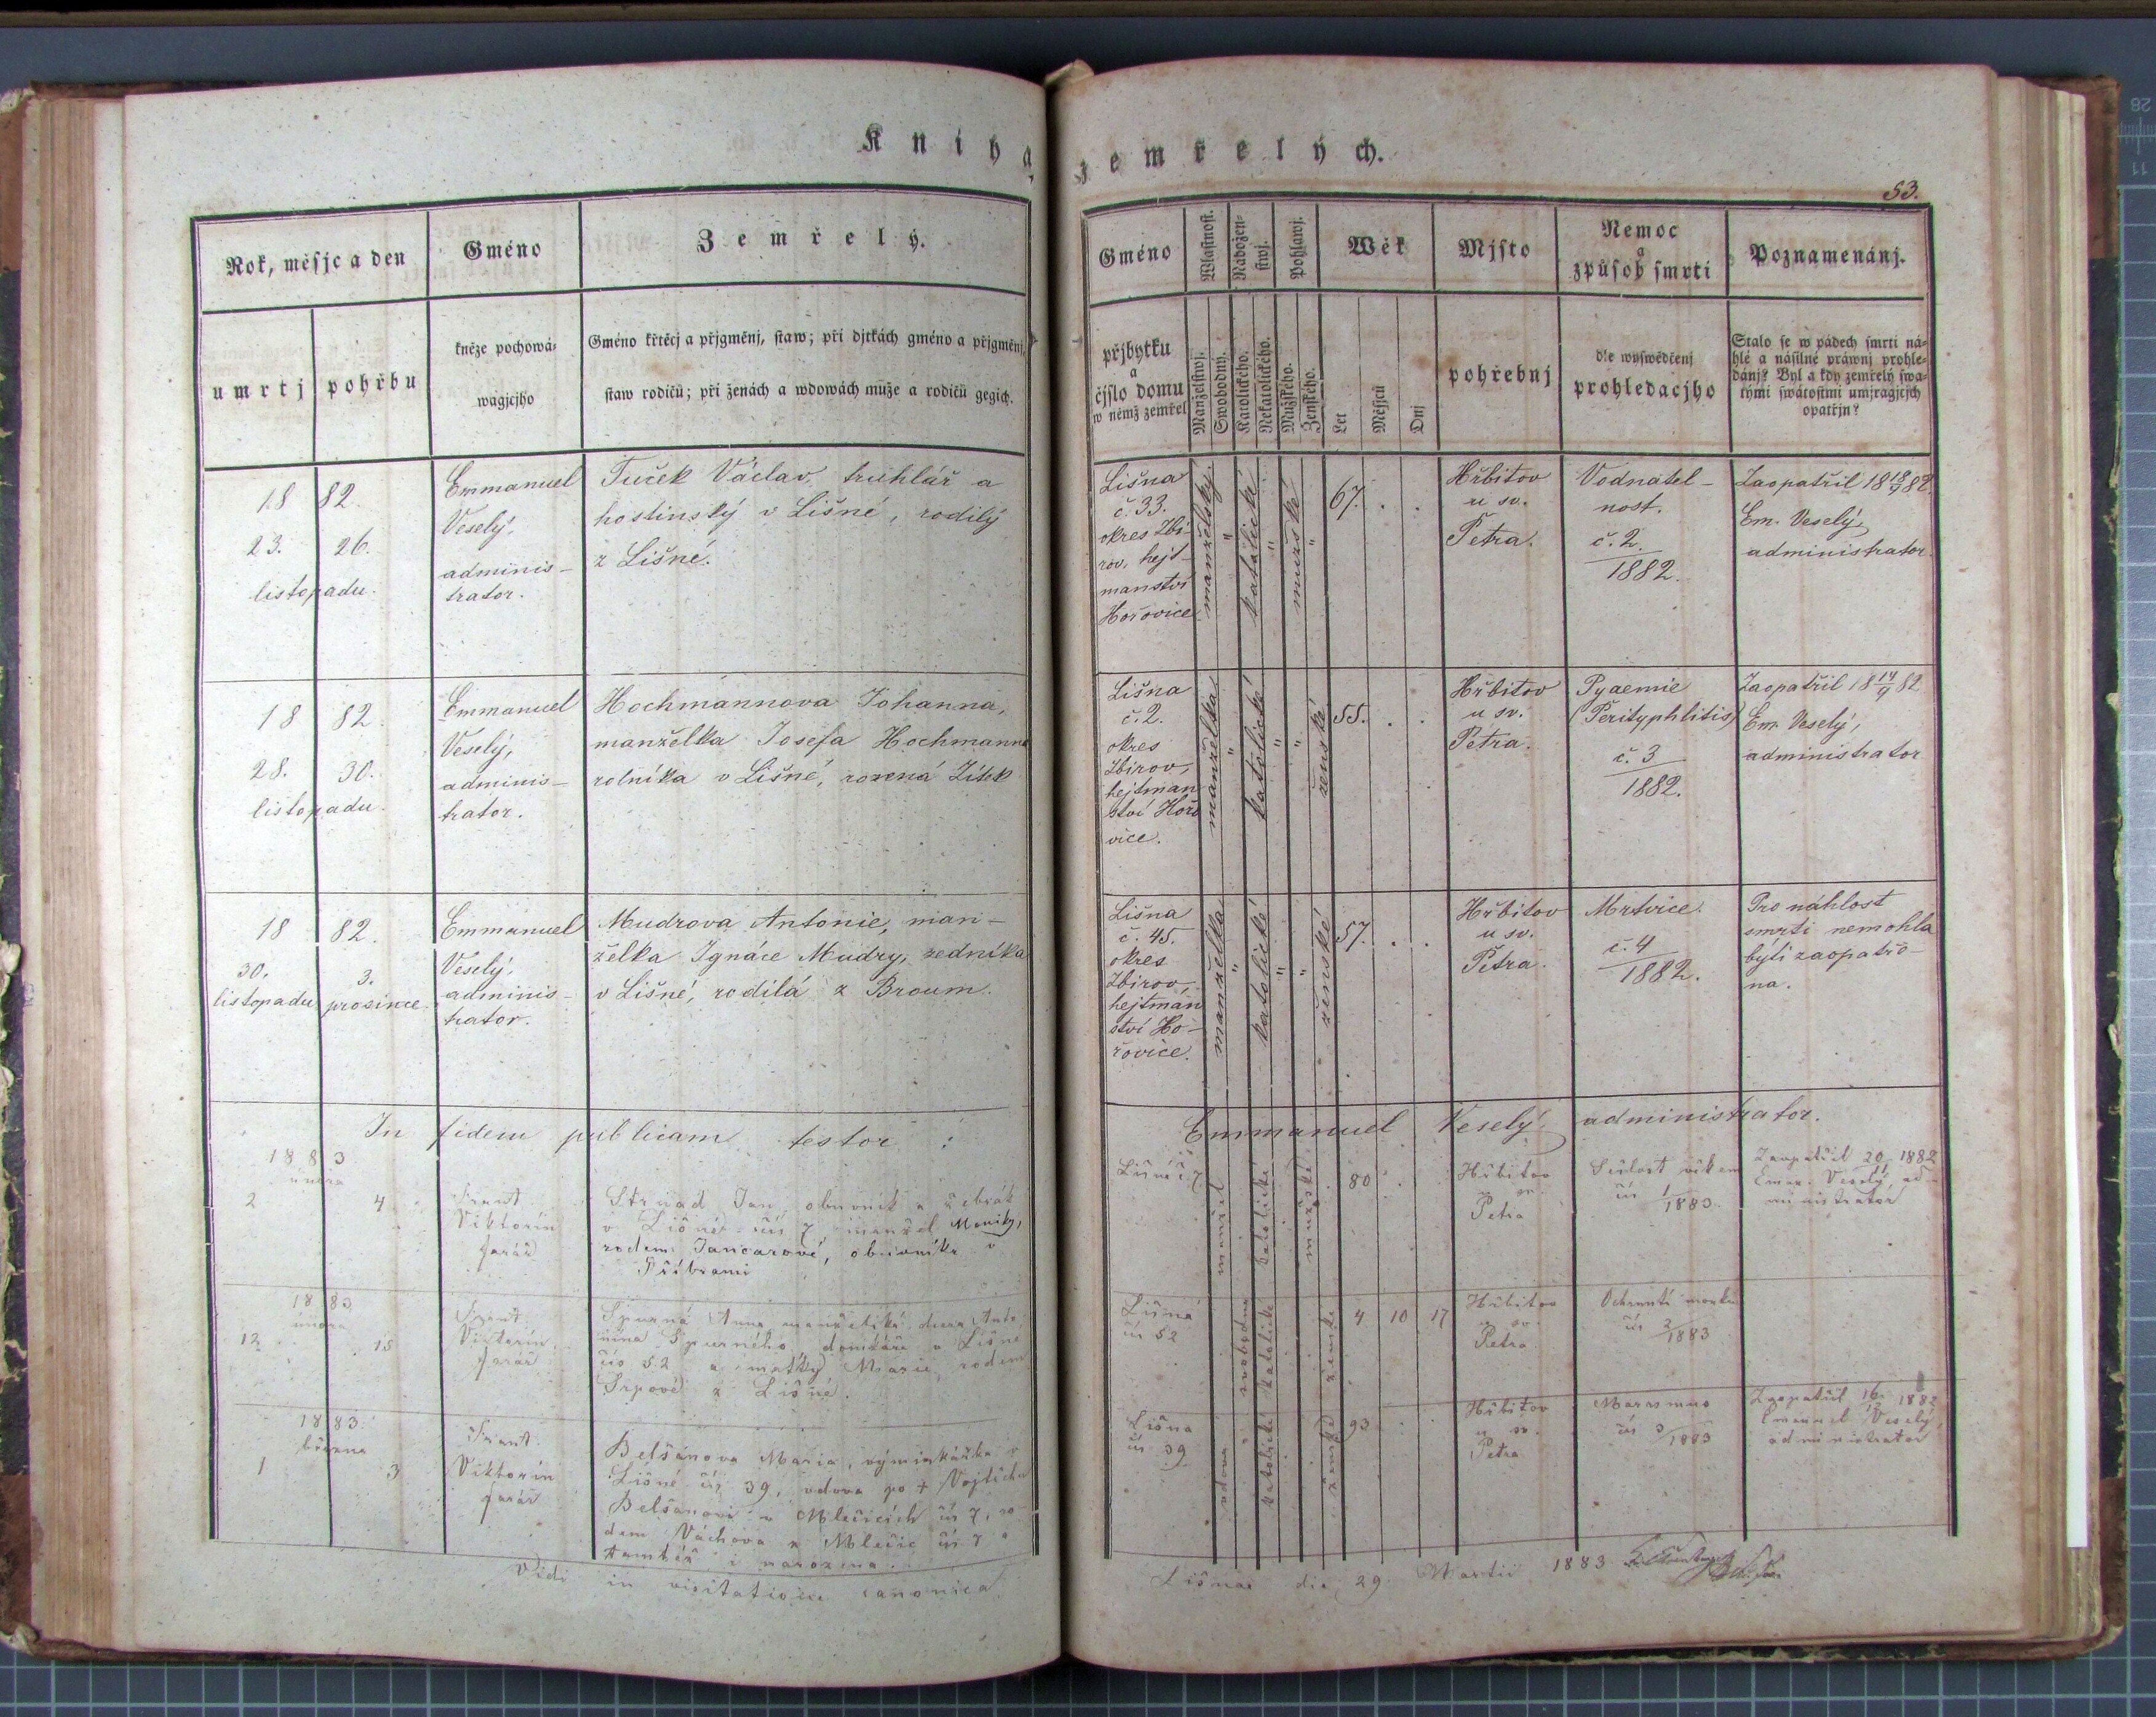 Kniha
zemřelých.
53.
Rok, měsjc a den
Gméno
Zemřelý.
umrtj
pohřbu
kněze pochowá-
wagjcjho
Gméno křtěcj a přjgměnj, staw; při djtkách gméno a přjgměnj,
staw rodičů; při ženách a wdowách muže a rodičů gegich.
Gméno
přjbytku
a
čjslo domu
w němž zemřel
Wlastnost.
Nábožen-
stwj.
Pohlawj.
Wěk
Mjsto
pohřebnj
Nemoc
a
způsob smrti
dle wyswědčenj
prohledacjho
Poznamenánj.
Stalo se w pádech smrti ná-
hlé a násilné práwnj prohle-
dánj? Byl a kdy zemřelý swa-
tými swátostmi umjragjcjch
opatřjn?
Manželstwj.
Swobodný.
Katolického.
Nekatolického.
Mužského.
Ženského.
Let
Měsjců
Dnj
18 82.
23. 26.
listopadu.
Emmanuel
Veselý,
adminis-
trator.
Tuček Václav, truhlář a
hostinský v Lišné, rodilý
z Lišné.
Lišna
č. 33.
okres Zbi-
rov, hejt-
manství
Hořovice
manželský
"
katolické
"
mužské
"
67. . .
Hřbitov
u sv.
Petra.
Vodnatel-
nost.
č. 2.
1882.
Zaopatřil 18 18/9 82.
Em. Veselý,
administrator.
18 82.
28. 30.
listopadu.
Emmanuel
Veselý,
adminis-
trator.
Hochmannova Johanna,
manželka Josefa Hochmanna
rolníka v Lišné, rozená Zítek
Lišna
č. 2.
okres
Zbirov,
hejtman
ství Hořo
vice.
manželka
"
katolické
"
"
ženské
55. . .
Hřbitov
u sv.
Petra.
Pyaemie
(Perityphlitis)
č. 3
1882.
Zaopatřil 18 14/9 82
Em. Veselý,
administrator
18 82.
30. 3.
listopadu prosince.
Emmanuel
Veselý,
adminis-
trator.
Mudrova Antonie, man-
želka Ignáce Mudry, zedníka
v Lišné, rodilá z Broum.
Lišna
č. 45.
okres
Zbirov,
hejtman
ství Ho-
řovice.
manželka
"
katolické
"
"
ženské
57. . .
Hřbitov
u sv.
Petra.
Mrtvice.
č. 4
1882.
Pro náhlost
smrti nemohla
býti zaopatře-
na.
In fidem publicam testor : Emmanuel Veselý administrator.
1883
února
2 4
Frant.
Viktorin
farář
Strnad Jan, obuvník a žebrák
v Lišné čís 7, manžel Moniky,
rodem Jancarové, obuvníka v
Příbrami
Lišné č. 7
manžel
katolické
mužské
80
Hřbitov
u sv.
Petra
Sešlost věkem
čís 1/1883
Zaopatřil 20/11 1882
Eman. Veselý, ad-
ministrator
1883
února
12 15
Frant.
Viktorin
farář
Spurná Anna, manželská dcera Anto-
nína Spurného, domkáře v Lišné
čís 52 a matky Marie, rodem
Srpové z Lišné.
Lišná
čís 52
svobodna
katolické
ženské
4 10 17
Hřbitov
u sv.
Petra
Ochrnutí mozku
čís 2/1883
1883.
března
1 3
Frant.
Viktorin
farář
Belšánova Maria, výminkářka v
Lišné čís 39, vdova po + Vojtěchu
Belšanovi v Mlečicích čís 7, ro
dem Váchova z Mlečic čís 7 a
tamtéž i narozena.
Lišna
čís 39
vdova
katolické
ženské
93
Hřbitov
u sv.
Petra
Marasmus
čís 3/1883
Zaopatřil 16/12 1882
Emanuel Veselý,
administrator
Vidi in visitatione canonica
Lišnae die 29 Martii 1883